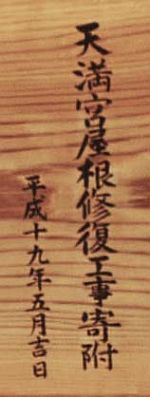 天満宮屋根修復工事寄附
平成十九年五月吉日